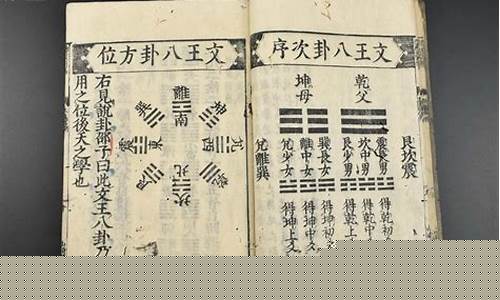 文王八卦次序
乾父
坤母
震坎艮
巽離兌
震長男
坎中男
艮少男
巽長女
離中女
兌少女
得乾初
得乾中
得乾上
得坤初
得坤中
得坤上
文王八卦方位
離南
坤
兌西
坎北
震東
巽
右見說卦邵子曰此文王八卦乃
用之位後天之學也